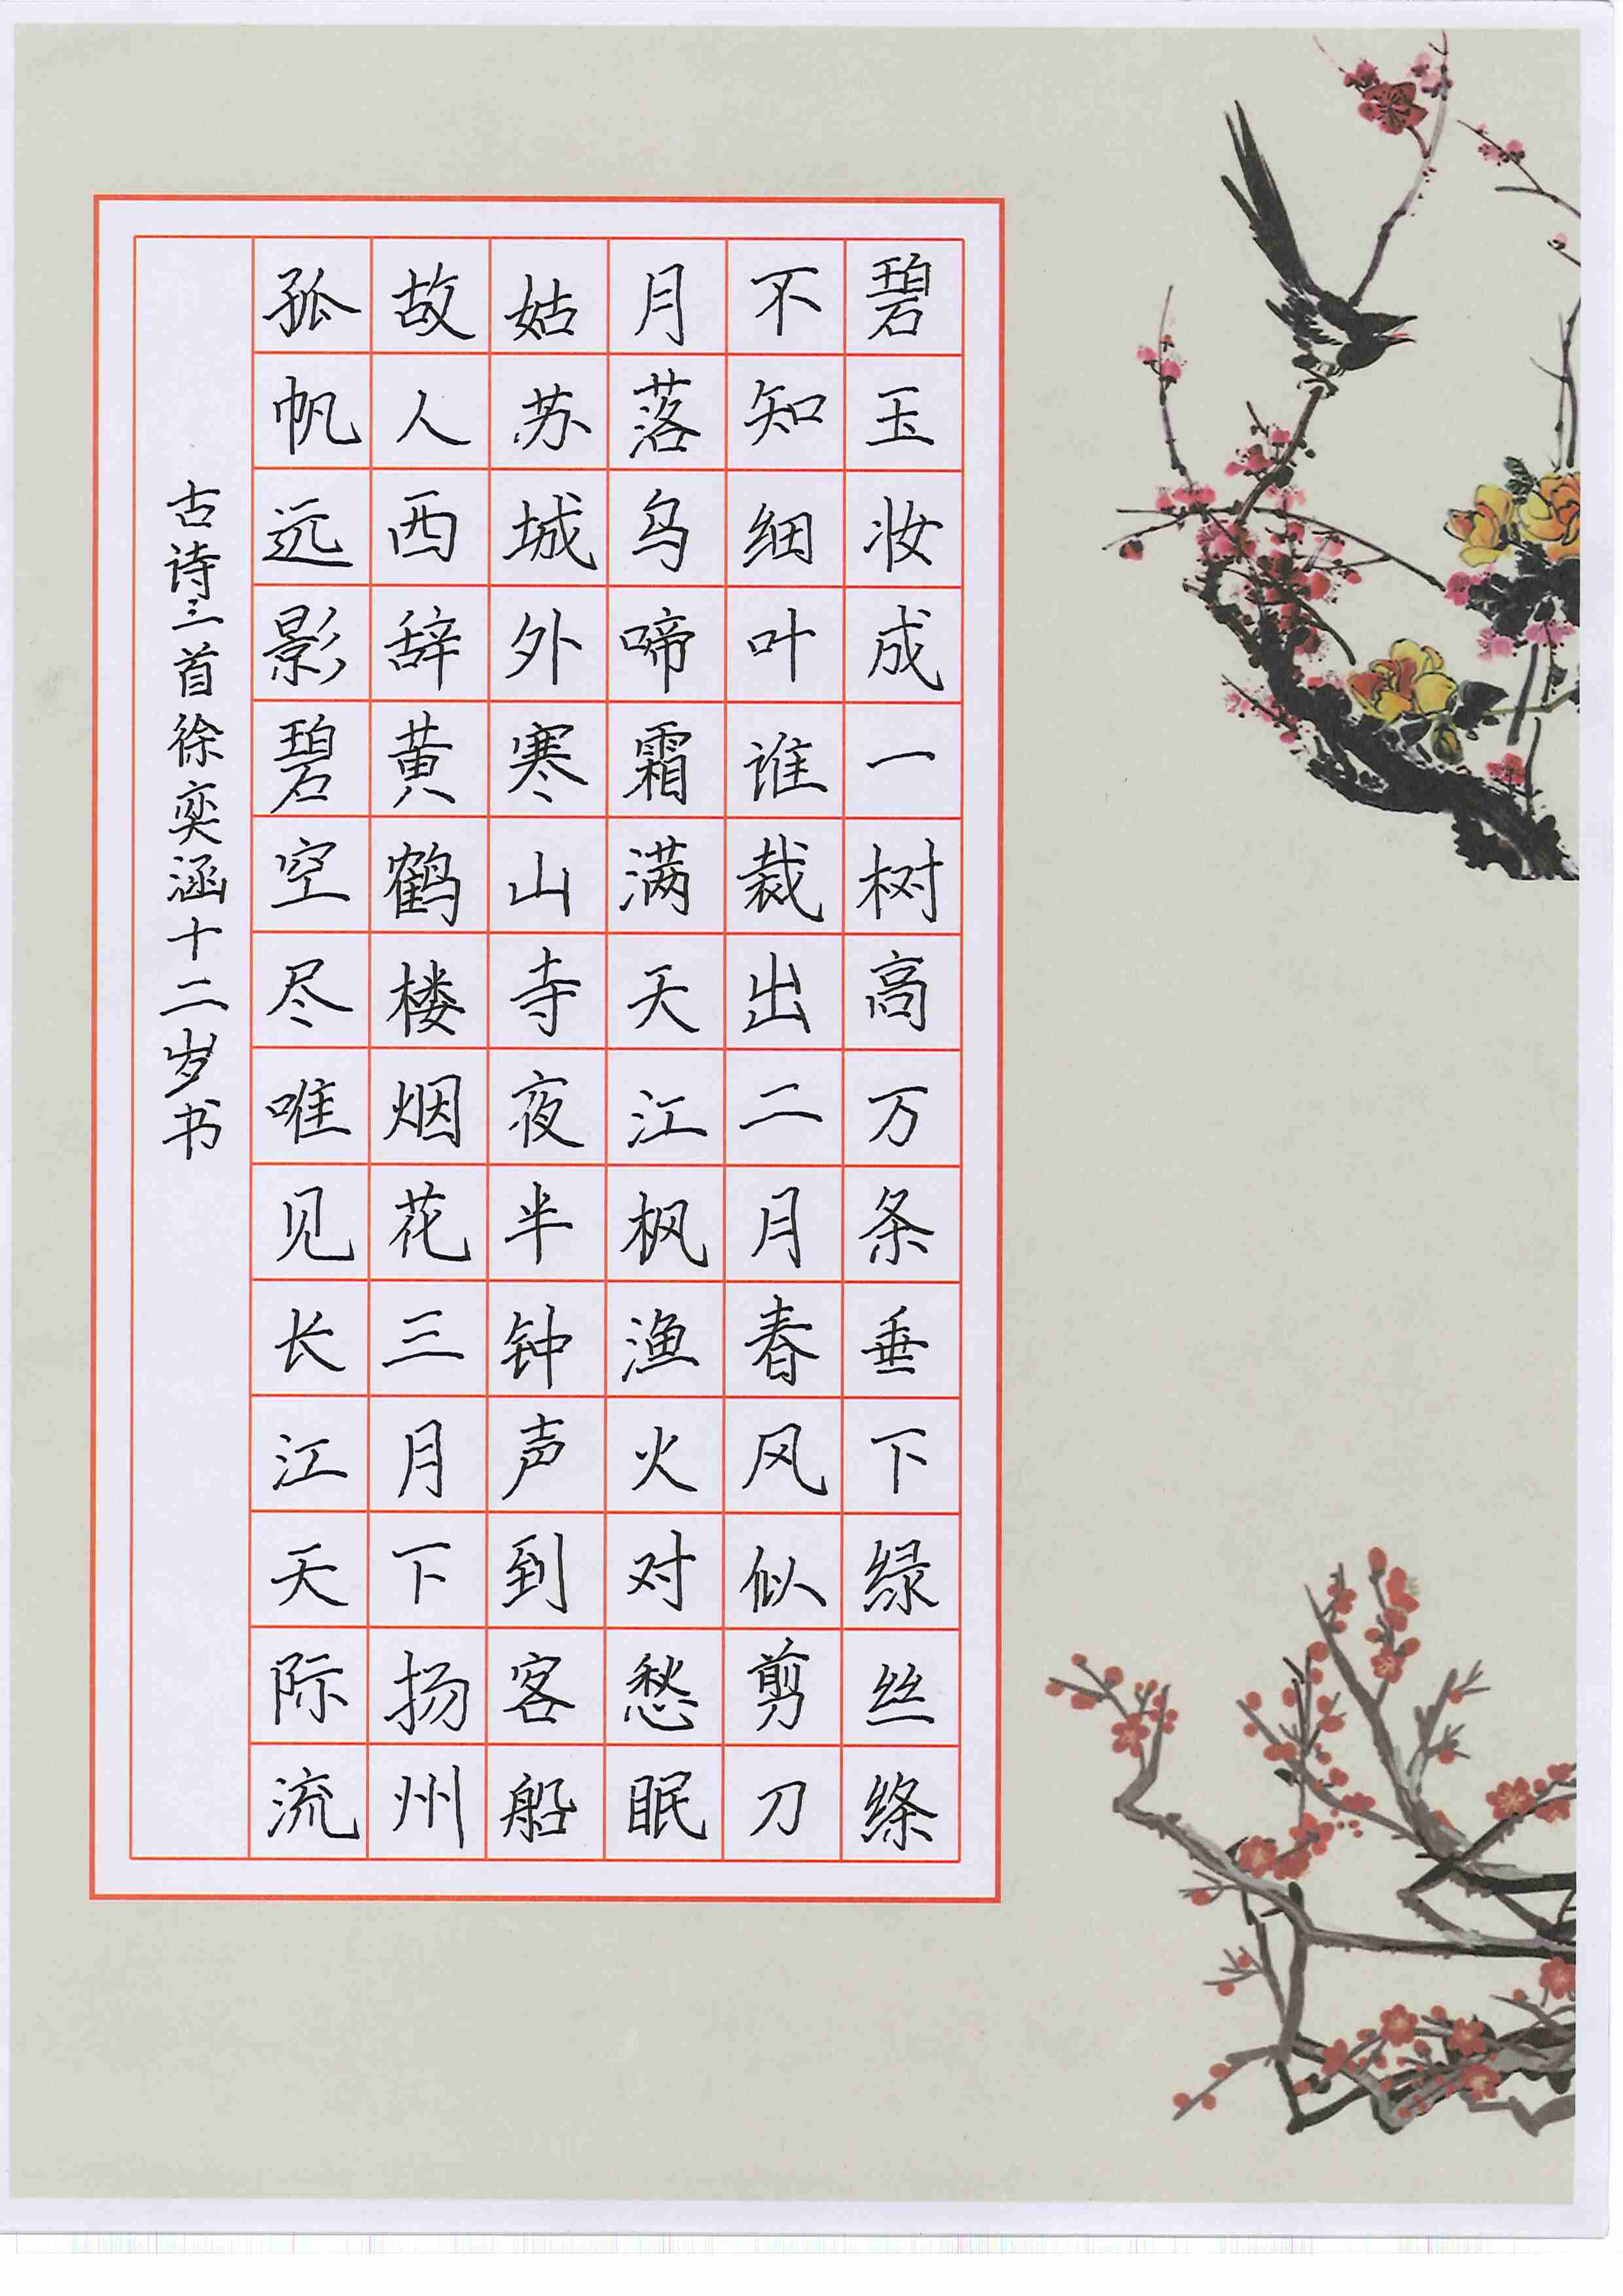 碧玉妆成一树高万条垂下绿丝绦
不知细叶谁裁出二月春风似剪刀
月落乌啼霜满天江枫渔火对愁眠
姑苏城外寒山寺夜半钟声到客船
故人西辞黄鹤楼烟花三月下扬州
孤帆远影碧空尽唯见长江天际流
古诗三首徐奕涵十二岁书